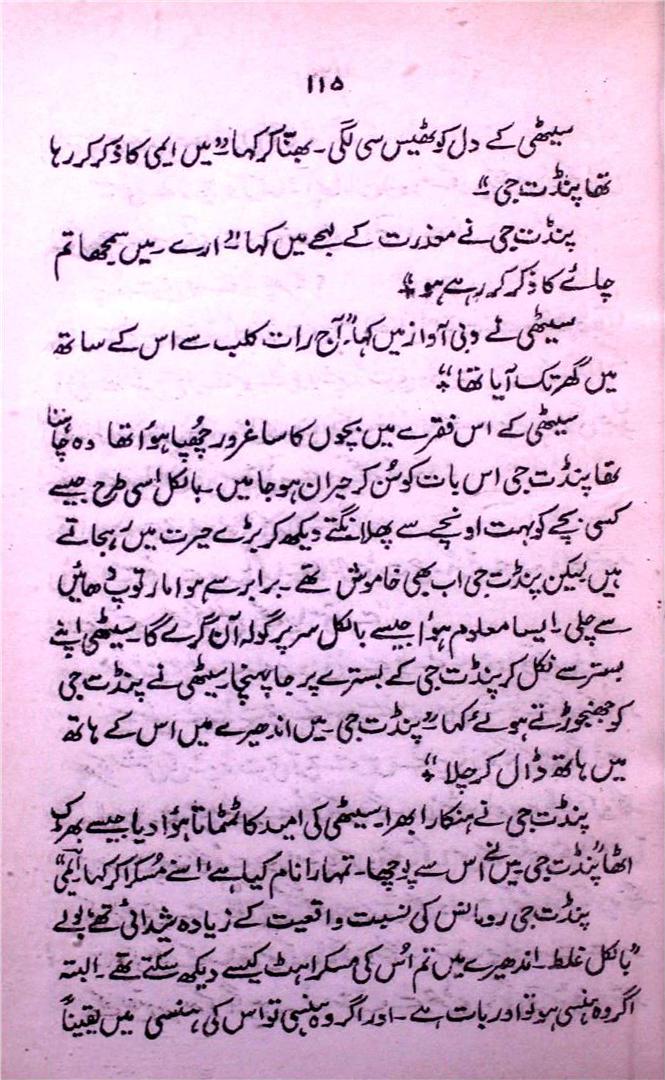 ۱۱۵
سیٹھی کے دل کو ٹھیس سی لگی ۔ بھنّا کر کہا "میں ایمی کا ذکر کر رہا
تھا پنڈت جی "۔
پنڈت جی نے معذرت کے لہجے میں کہا " ارے ۔ میں سمجھا تم
چائے کا ذکر کر رہے ہو "۔
سیٹھی نے دبی آواز میں کہا "آج رات کلب سے اس کے ساتھ
میں گھر تک آیا تھا "۔
سیٹھی کے اس فقرے میں بچوں کا سا غرور چھُپا ہوُا تھا وہ چاہتا
تھا پنڈت جی اس بات کو سُن کر حیران ہو جائیں ۔ بالکل اُسی طرح جیسے
کسی بچے کو بہت اونچے سے پھلانگتے دیکھ کر بڑے حیرت میں رہجاتے
ہیں لیکن پنڈت جی اب بھی خاموش تھے ۔ برابر سے ہوا مار توپ دھائیں
سے چلی ۔ ایسا معلوم ہوُا جیسے بالکل سر پر گولہ آن گرے گا ۔ سیٹھی اپنے
بستر سے نکل کر پنڈت جی کے بسترے پر جا پہنچا ۔ سیٹھی نے پنڈت جی
کو جھنجوڑتے ہوئے کہا "پنڈت جی ۔ میں اندھیرے میں اس کے ہاتھ
میں ہاتھ ڈال کر چلا "۔
پنڈت جی نے ہنکارا بھرا ۔ سیٹھی کی امید کا ٹمٹماتا ہوُا دیا جیسے بھڑک
اٹھا "پنڈت جی ۔ میں نے اُس سے پوچھا ۔ تمہارا نام کیا ہے ؟ اسنے مُسکرا کر کہا "ایمی"
پنڈت جی رومانس کی نسبت واقعیت کے زیادہ شیدائی تھے بولے
"بالکل غلط ۔ اندھیرے میں تم اُس کی مسکراہٹ کیسے دیکھ سکتے تھے ۔ البتہ
اگر وہ ہنسی ہو تو اور بات ہے ۔ اور اگر وہ ہنسی تو اس کی ہنسی میں یقیناً